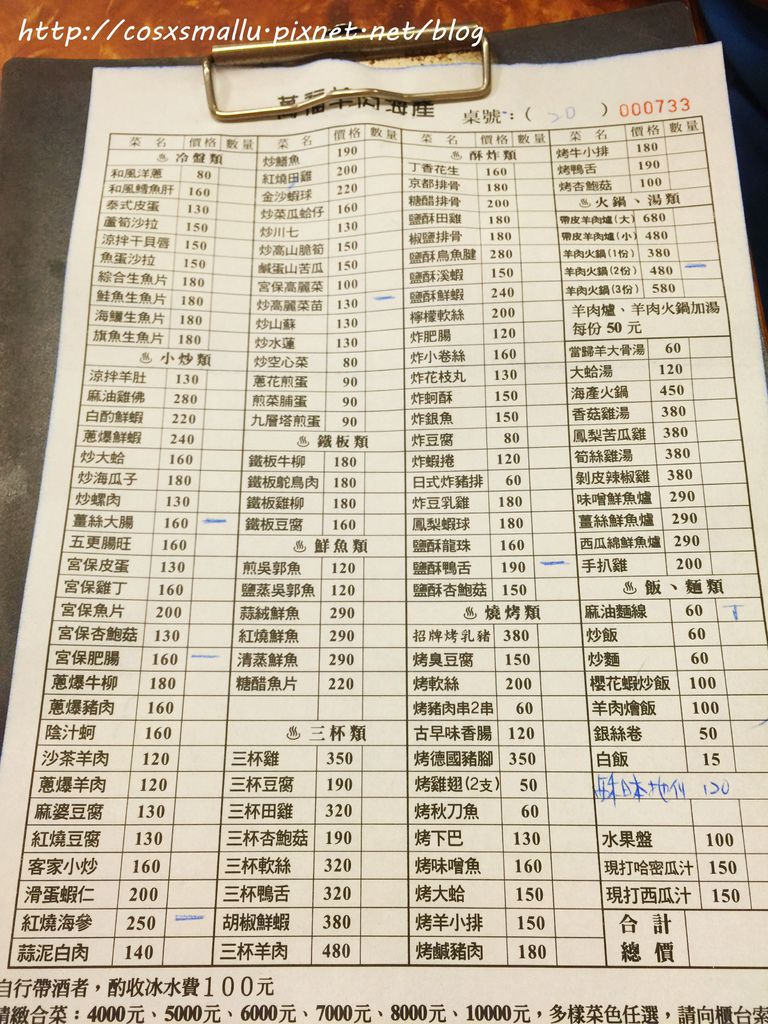 http://cosxsmallu.pixnet.net/blog
羊肉海產
桌號：( 20 ) 000733
菜 名 價格 數量
♨ 冷盤類
和風洋蔥 80
和風鱈魚肝 160
泰式皮蛋 130
蘆筍沙拉 150
涼拌干貝唇 150
魚蛋沙拉 150
綜合生魚片 180
鮭魚生魚片 180
海鱺生魚片 180
旗魚生魚片 180
♨ 小炒類
涼拌羊肚 130
麻油雞佛 280
白酌鮮蝦 220
蔥爆鮮蝦 240
炒大蛤 160
炒海瓜子 180
炒螺肉 130
薑絲大腸 160 一
五更腸旺 160
宮保皮蛋 130
宮保雞丁 160
宮保魚片 200
宮保杏鮑菇 130
宮保肥腸 160 一
蔥爆牛柳 180
蔥爆豬肉 160
陰汁蚵 160
沙茶羊肉 120
蔥爆羊肉 120
麻婆豆腐 130
紅燒豆腐 130
客家小炒 160
滑蛋蝦仁 200
紅燒海參 250 一
蒜泥白肉 140
菜 名 價格 數量
炒鱔魚 190
紅燒田雞 200
金沙蝦球 220
炒菜瓜蛤仔 160
炒川七 130
炒高山脆筍 150
鹹蛋山苦瓜 150
宮保高麗菜 100
炒高麗菜苗 130 一
炒山蘇 130
炒水蓮 130
炒空心菜 80
蔥花煎蛋 90
煎菜脯蛋 90
九層塔煎蛋 90
♨ 鐵板類
鐵板牛柳 180
鐵板鴕鳥肉 180
鐵板雞柳 180
鐵板豆腐 160
♨ 鮮魚類
煎吳郭魚 120
鹽蒸吳郭魚 120
蒜絨鮮魚 290
紅燒鮮魚 290
清蒸鮮魚 290
糖醋魚片 220
♨ 三杯類
三杯雞 350
三杯豆腐 190
三杯田雞 320
三杯杏鮑菇 190
三杯軟絲 320
三杯鴨舌 320
胡椒鮮蝦 380
三杯羊肉 480
菜 名 價格 數量
♨ 酥炸類
丁香花生 160
京都排骨 180
糖醋排骨 200
鹽酥田雞 180
椒鹽排骨 180
鹽酥鳥魚腱 280
鹽酥溪蝦 150
鹽酥鮮蝦 240
檸檬軟絲 200
炸肥腸 120
炸小卷絲 160
炸花枝丸 130
炸蚵酥 150
炸銀魚 150
炸豆腐 80
炸蝦捲 120
日式炸豬排 60
炸豆乳雞 180
鳳梨蝦球 180
鹽酥龍珠 160
鹽酥鴨舌 190 一
鹽酥杏鮑菇 150
♨ 燒烤類
招牌烤乳豬 380
烤臭豆腐 150
烤軟絲 200
烤豬肉串2串 60
古早味香腸 120
烤德國豬腳 350
烤雞翅(2支) 50
烤秋刀魚 60
烤下巴 130
烤味噌魚 160
烤大蛤 150
烤羊小排 150
烤鹹豬肉 180
菜 名 價格 數量
烤牛小排 180
烤鴨舌 190
烤杏鮑菇 100
♨ 火鍋、湯類
帶皮羊肉爐(大) 680
帶皮羊肉爐(小) 480
羊肉火鍋(1份) 380
羊肉火鍋(2份) 480 一
羊肉火鍋(3份) 580
羊肉爐、羊肉火鍋加湯
每份 50 元
當歸羊大骨湯 60
大蛤湯 120
海產火鍋 450
香菇雞湯 380
鳳梨苦瓜雞 380
筍絲雞湯 380
剝皮辣椒雞 380
味噌鮮魚爐 290
薑絲鮮魚爐 290
西瓜綿鮮魚爐 290
手扒雞 200
♨ 飯、麵類
麻油麵線 60 丅
炒飯 60
炒麵 60
櫻花蝦炒飯 100
羊肉燴飯 100
銀絲卷 50
白飯 15
120
水果盤 100
現打哈密瓜汁 150
現打西瓜汁 150
合 計
總 價
自行帶酒者，酌收冰水費100元
精緻合菜：4000元、5000元、6000元、7000元、8000元、10000元，多樣菜色任選，請向櫃台索